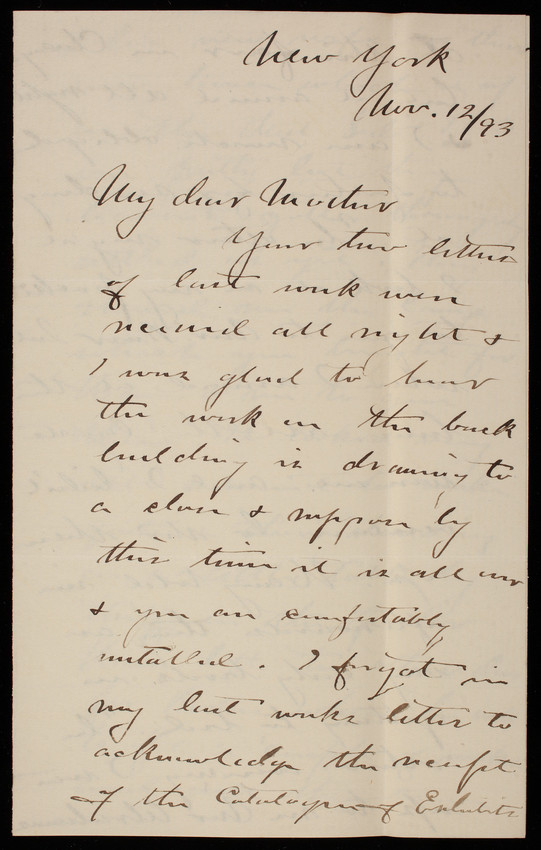 New York
Nov. 12/93
My dear Mother
Your two letters
of last week were
received all right &
I was glad to hear
the work on the back
building is drawing to
a close & suppose by
this time it is all over
& you are comfortably
installed. I forgot in
my last weeks letter to
acknowledge the receipt
of the Catalogue of Exhibits